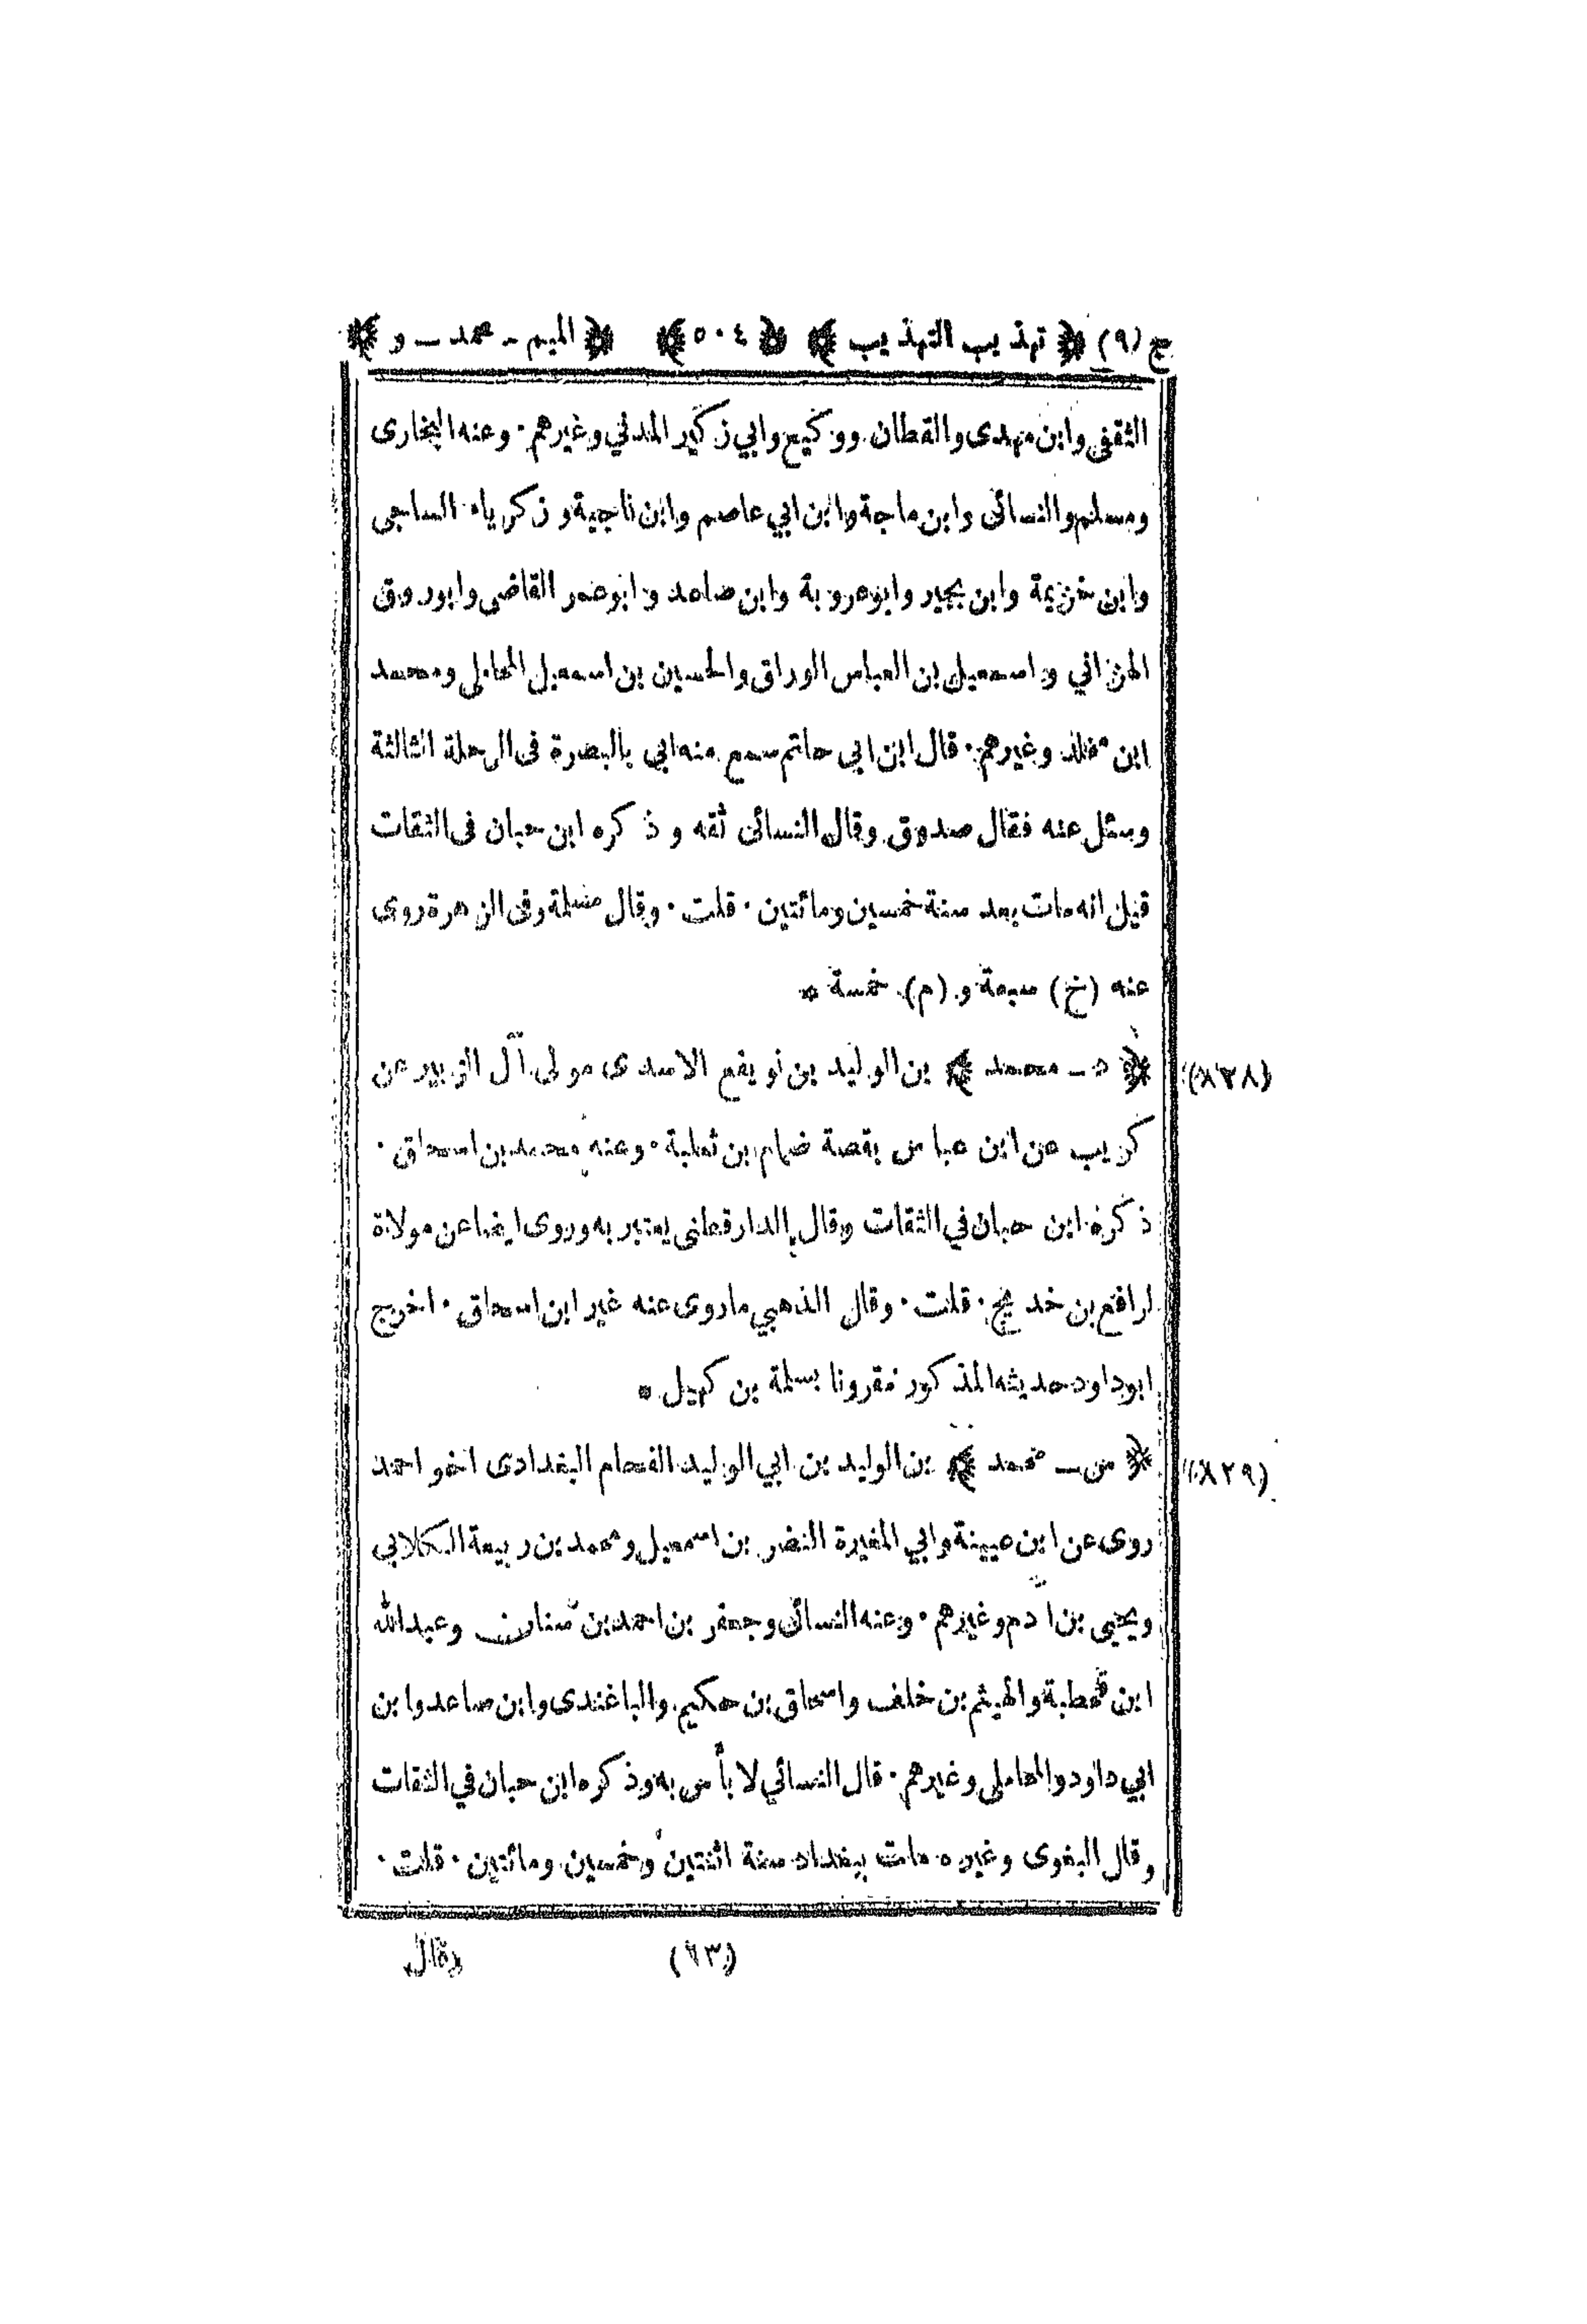 ج (٩) ﴿ تهذيب التهذيب ﴾ ﴿ ٥٠٤ ﴾ ﴿ الميم - محمد - و ﴾
الثقفي وابن مهدى والقطان ووكيع وابي زكير المدني وغيرهم · وعنه البخارى
ومسلم والنسائى وابن ماجة وابن ابي عاصم وابن ناجية و زكرياء الساجى
وابن خزيمة وابن بجير وابو عروبة وابن صاعد وابو عمر القاضى وابو روق
الهزاني واسمعيل بن العباس الوراق والحسين بن اسمعيل المحاملى ومحمد
ابن مخلد وغيرهم · قال ابن ابى حاتم سمع منه ابي بالبصرة فى الرحلة الثالثة
وسئل عنه فقال صدوق وقال النسائى ثقه و ذكره ابن حبان فى الثقات
قيل انه مات بعد سنة خمسين ومائتين · قلت · وقال مسلمة وفى الزهرة روى
عنه (خ) سبعة و (م) خمسة *
(٨٢٨) ﴿ د - محمد ﴾ بن الوليد بن نويفع الاسدى مولى آل الزبير عن
كريب عن ابن عباس بقصة ضمام بن ثعلبة · وعنه محمد بن اسحاق ·
ذكره ابن حبان في الثقات وقال الدارقطنى يعتبر به وروى ايضا عن مولاة
لرافع بن خديج · قلت · وقال الذهبي ما روى عنه غير ابن اسحاق · اخرج
ابو داود حديثه المذكور مقرونا بسلمة بن كهيل *
(٨٢٩) ﴿ س - محمد ﴾ بن الوليد بن ابي الوليد الفحام البغدادى اخو احمد
روى عن ابن عيينة وابي المغيرة النضر بن اسمعيل ومحمد بن ربيعة الكلابي
ويحيى بن آدم وغيرهم · وعنه النسائى وجعفر بن احمد بن سنان وعبد الله
ابن قحطبة والهيثم بن خلف واسحاق بن حكيم والباغندى وابن صاعد وابن
ابي داود والمحاملى وغيرهم · قال النسائي لا بأس به وذكره ابن حبان في الثقات
وقال البغوى وغيره مات ببغداد سنة اثنتين وخمسين ومائتين · قلت ·
(٦٣) وقال